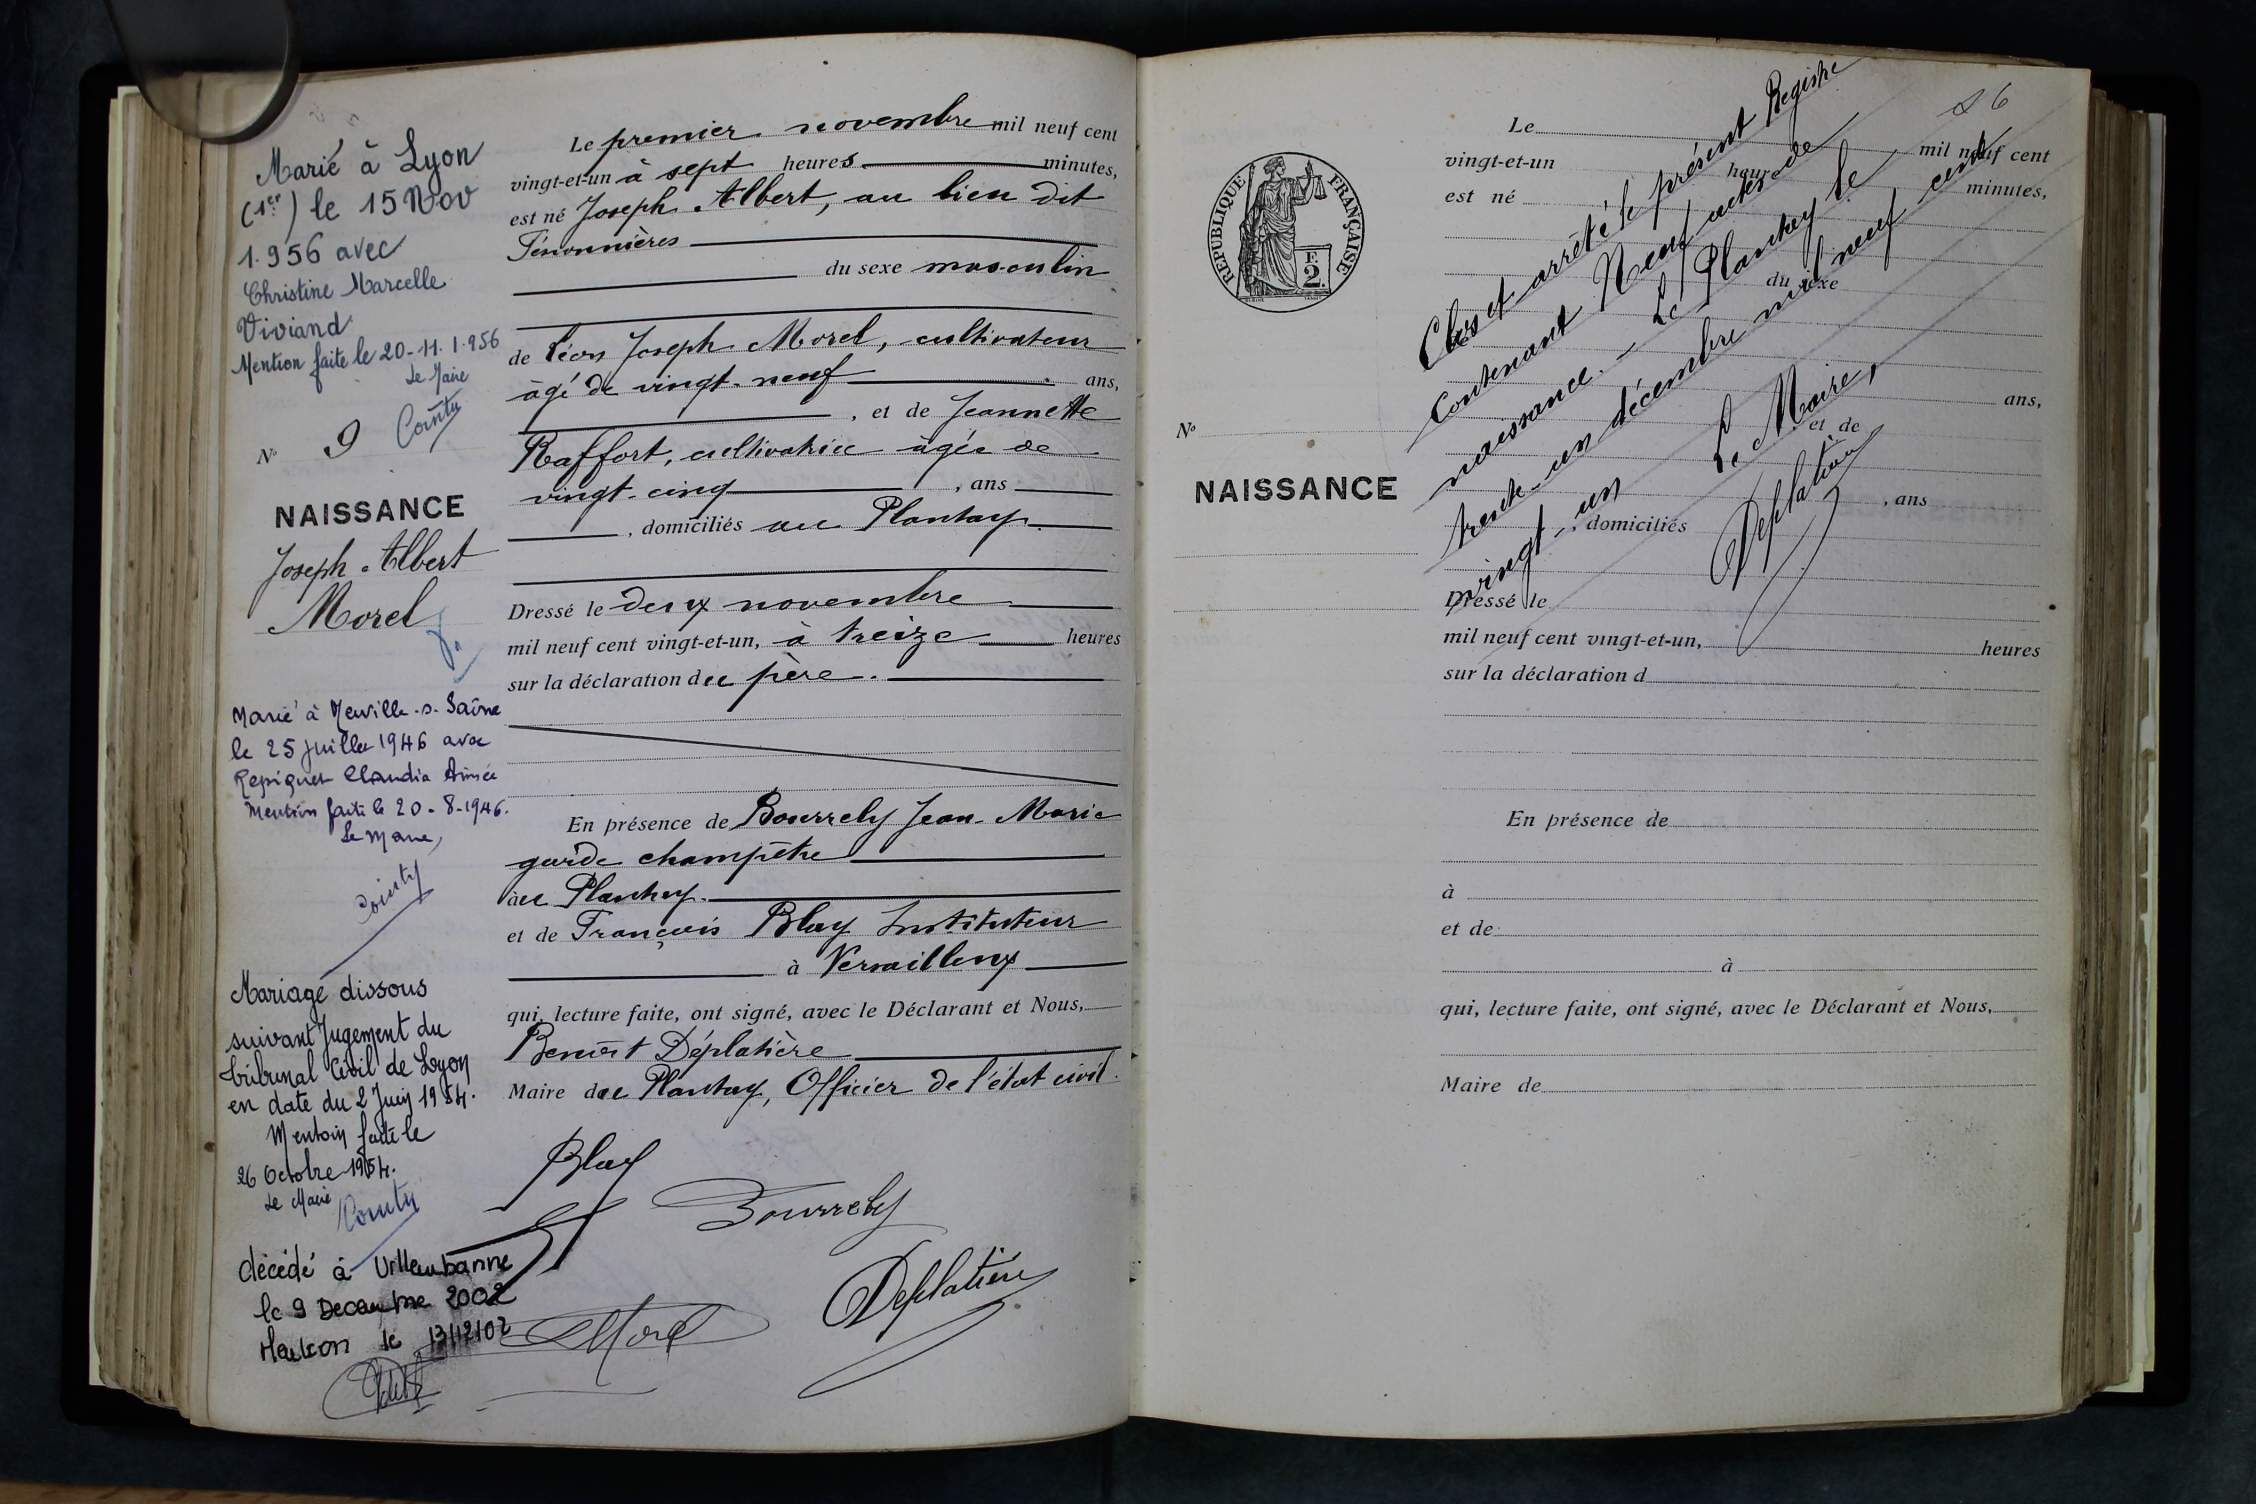 Marié à Lyon
(1er) le 15 Nov
1.956 avec
Christine Marcelle
Viviand
Mention faite le 20-11.1.956
Le Maire
Cointy
N° 9
NAISSANCE
Joseph Albert
Morel
Marié à Neuville-s-Saône
le 25 juillet 1946 avec
Repiquet Claudia Aimée
Mention faite le 20-8-1946.
Le Maire,
Cointy
Mariage dissous
suivant Jugement du
tribunal Civil de Lyon
en date du 2 Juin 1954.
Mention faite le
26 Octobre 1954.
Le Maire
Cointy
décédé à Villeurbanne
le 9 Decembre 2002
Mention le 13/12/02
Le premier novembre mil neuf cent
vingt-et-un à sept heures minutes,
est né Joseph Albert, au lieu dit
du sexe masculin
de Léon Joseph Morel, cultivateur
âgé de vingt-neuf ans,
, et de Jeannette
Raffort, cultivatrice âgée de
vingt-cinq , ans
, domiciliés au Plantay.
Dressé le deux novembre
mil neuf cent vingt-et-un, à treize heures
sur la déclaration du père.
En présence de Bourrely Jean-Marie
garde champêtre
au Plantay.
et de François Blay Instituteur
à Versailleux
qui, lecture faite, ont signé, avec le Déclarant et Nous,
Benoît Déplatière
Maire du Plantay, Officier de l'état civil.
Blay
Bourrely
Deplatière
Morel
RÉPUBLIQUE FRANÇAISE
F.
2.
N°
NAISSANCE
26
Le mil neuf cent
vingt-et-un heures minutes,
est né
du sexe
ans,
et de
, ans
, domiciliés
Dressé le
mil neuf cent vingt-et-un, heures
sur la déclaration d
En présence de
à
et de
à
qui, lecture faite, ont signé, avec le Déclarant et Nous,
Maire de
Clos et arrêté le présent Registre
contenant Neuf actes de
naissance. - Le Plantay le
trente-un décembre mil neuf cent
vingt-un
Le Maire,
Deplatière